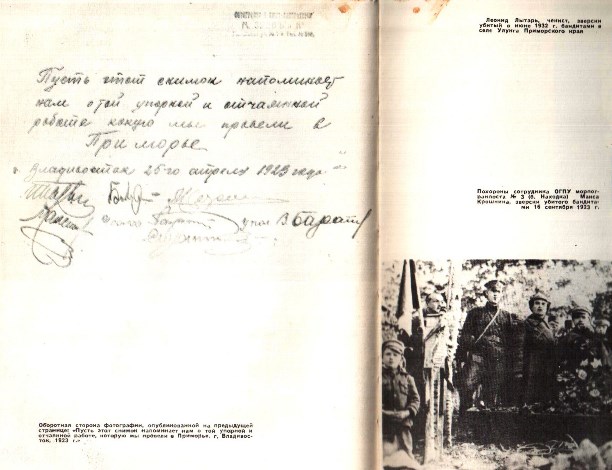 Пусть этот снимок напоминает
нам о той упорной и отчаянной
работе какую мы провели в
Приморье.
Владивосток 25-го апреля 1923 года
В. Барат
Оборотная сторона фотографии, опубликованной на предыдущей
странице: «Пусть этот снимок напоминает нам о той упорной и
отчаянной работе, которую мы провели в Приморье. г. Владивос-
ток, 1923 г.»
Леонид Лытарь, чекист, зверски
убитый в июне 1932 г. бандитами в
селе Улунга Приморского края
Похороны сотрудника ОГПУ морпог-
ранпоста № 3 (б. Находка) Макса
Крошкина, зверски убитого бандита-
ми 16 сентября 1933 г.